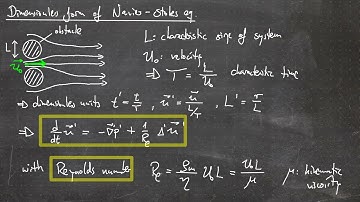 Dimensionless form of Navier-Stokes eq
obstacle
L
u₀
L: characteristic size of system
u₀: velocity
⇒ T = L/u₀ characteristic time
⇒ dimensionless units t' = t/T , u⃗' = u⃗/(L/T) , L' = r/L
⇒ d/dt u⃗' = -∇⃗p' + 1/Re Δ' u⃗'
with Reynolds number Re = ρm/η u₀L = u₀L/μ μ: kinematic
viscosity